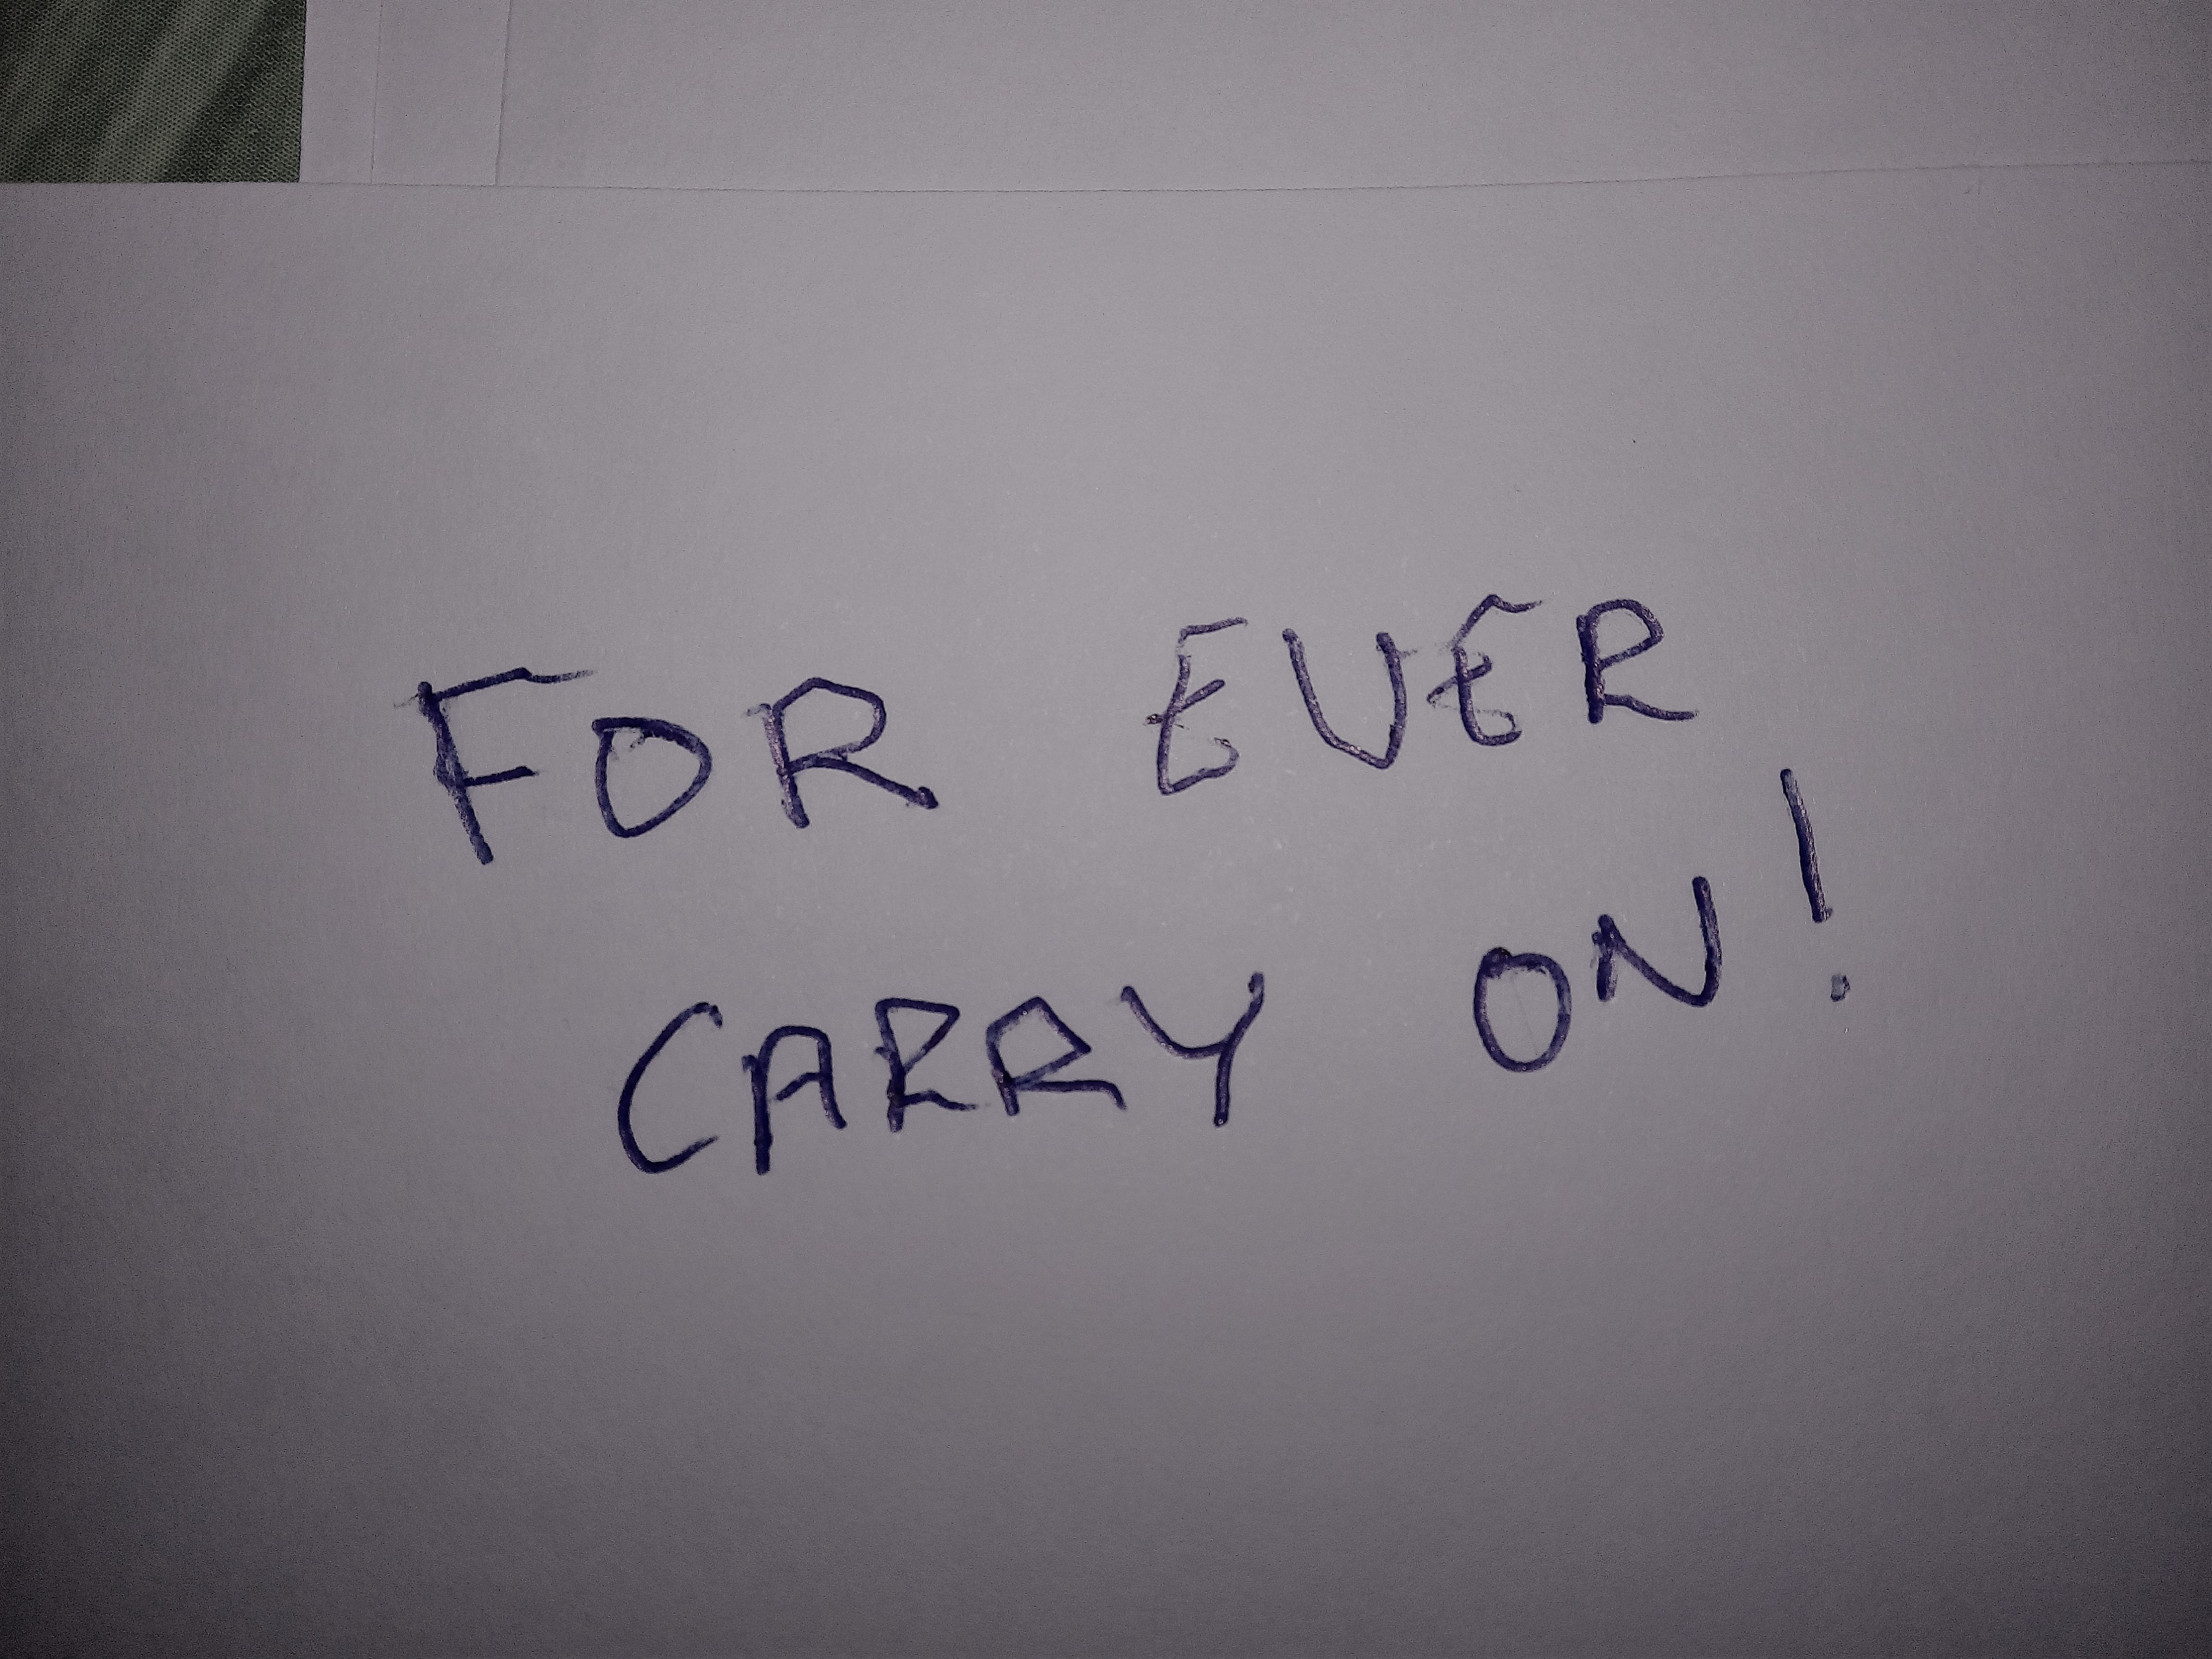 FOR EVER
CARRY ON!